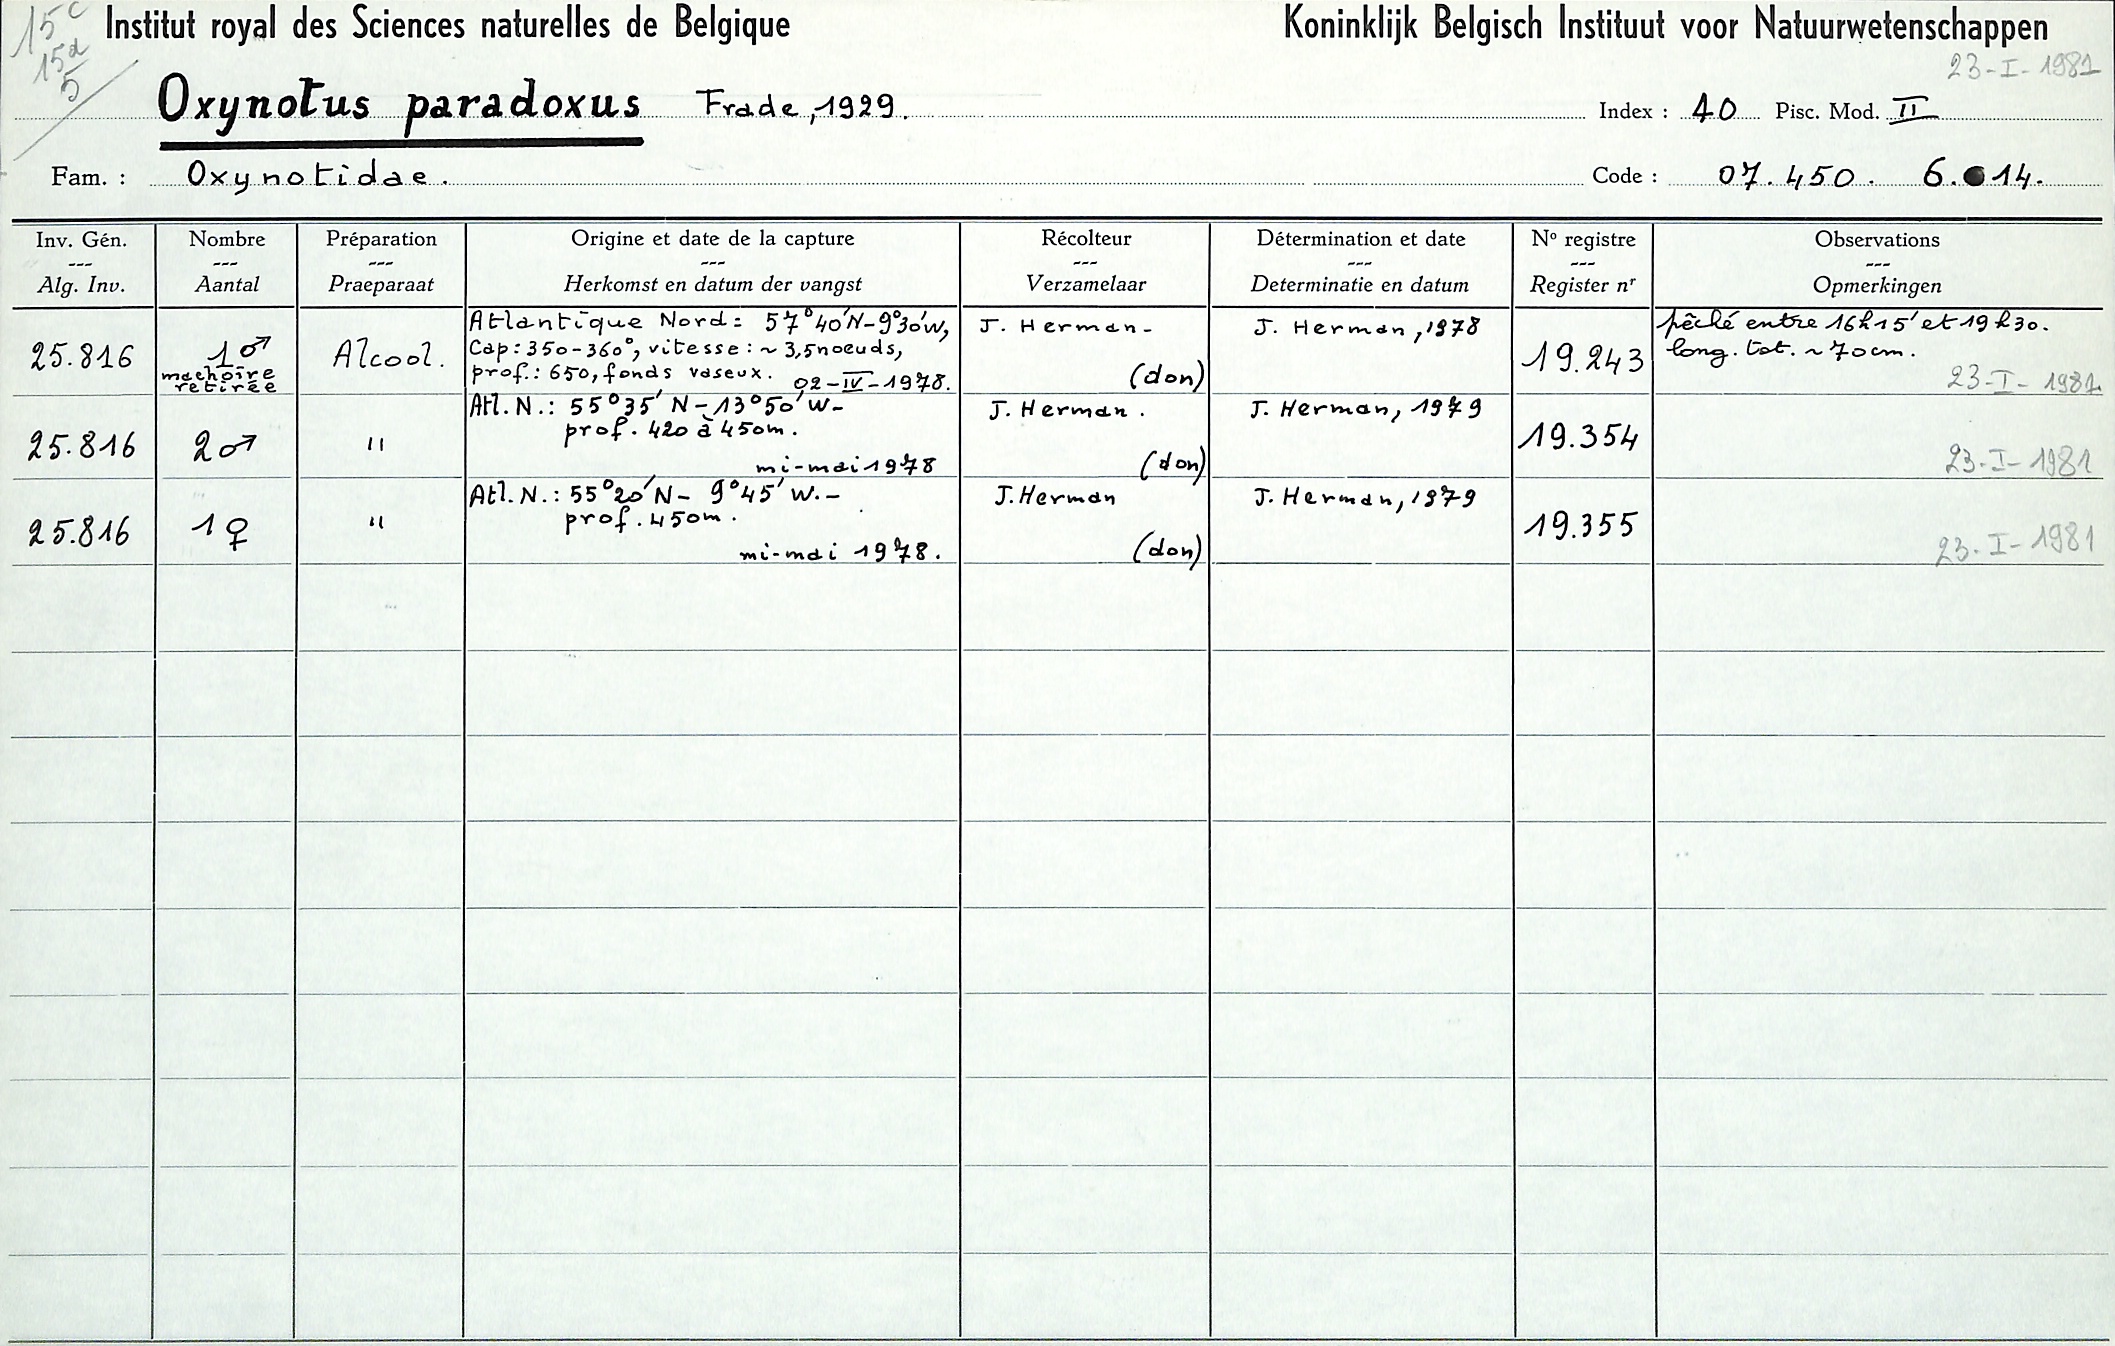 15c
15d
5
Institut royal des Sciences naturelles de Belgique
Koninklijk Belgisch Instituut voor Natuurwetenschappen
23-I-1981
Oxynotus paradoxus Frade, 1929.
Index : 40 Pisc. Mod. II
Fam. : Oxynotidae.
Code : 07.450. 6.014.
Inv. Gén.
---
Alg. Inv.
Nombre
---
Aantal
Préparation
---
Praeparaat
Origine et date de la capture
---
Herkomst en datum der vangst
Récolteur
---
Verzamelaar
Détermination et date
---
Determinatie en datum
No registre
---
Register nr
Observations
---
Opmerkingen
25.816
1♂
machoire
retirée
Alcool.
Atlantique Nord: 57°40'N-9°30'W,
Cap: 350-360°, vitesse: ~ 3,5 noeuds,
prof.: 650, fonds vaseux. 02-IV-1978.
J. Herman-
(don)
J. Herman, 1978
19.243
pêché entre 16h15' et 19h30.
long. tot. ~ 70cm.
23-I-1981
25.816
2♂
"
Atl. N.: 55°35' N-13°50' W-
prof. 420 à 450m.
mi-mai 1978
J. Herman.
(don)
J. Herman, 1979
19.354
23-I-1981
25.816
1♀
"
Atl. N.: 55°20'N- 9°45' W.-
prof. 450m.
mi-mai 1978.
J. Herman
(don)
J. Herman, 1979
19.355
23-I-1981